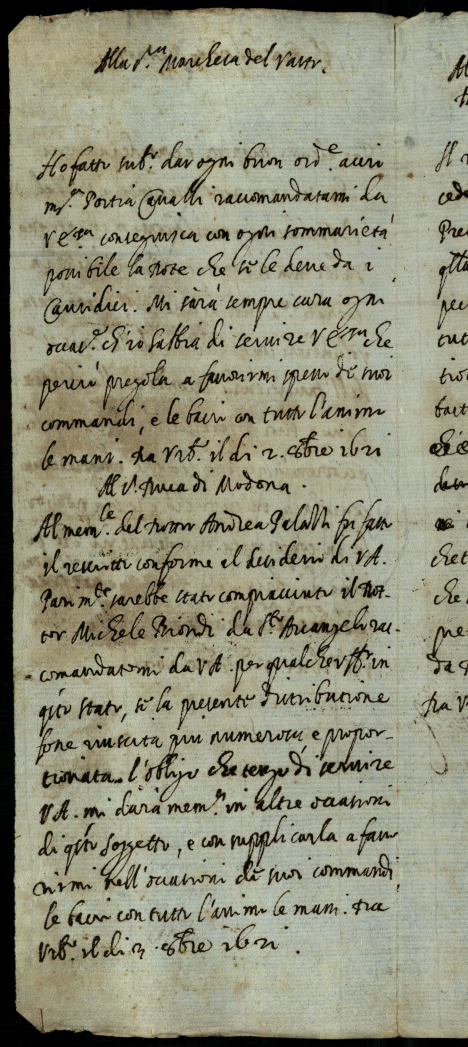 Alla S.ra Marchesa del Vasto.
Ho fatto sub.o dar ogni buon ord.e acciò
m.a Portia Cavalli raccomandatami da
V Ecc.za conseguisca con ogni sommarietà
possibile la dote che se le deve da i
Causidici. Mi sarà sempre cara ogni
occas.e ch'io habbia di servire V Ecc.za che
perciò pregola a favorirmi spesso de suoi
commandi, e le bacio con tutto l'animo
le mani. Da Urb.o il di 2. 8bre 1621
Al S.r Duca di Modona.
Al mem.le del Dottor Andrea Palazzi fu fatto
il rescritto conforme al desiderio di V A.
Parim.te sarebbe stato compiacciuto il Dot-
tor Michele Biondi da S.to Arcangelo rac-
comandatomi da V A. per qualche off.o in
q.sto stato, se la presente distributione
fosse riuscita più numerosa e propor-
tionata. l'obligo che tengo di servire
V A. mi darà mem.a in altre occasioni
di q.sto soggetto, e con supplicarla a favo-
rirmi nell'occasioni de suoi commandi
le bacio con tutto l'animo le mani. Da
Urb.o il di 3 8bre 1621.